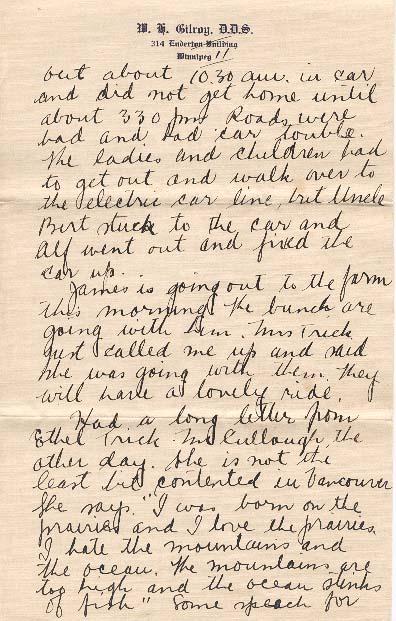 W. H. Gilroy, D.D.S.
314 Enderton Building
Winnipeg
11
out about 10.30 am. in car
and did not get home until
about 330 pm. Roads were
bad and had car touble.
The ladies and children had
to get out and walk over to
the electric car line, but Uncle
Burt stuck to the car and
Alf went out and fixed the
car up.
James is going out to the farm
this morning. The bunch are
going with him. Mrs Trick
just called me up and said
she was going with them. They
will have a lovely ride.
Had a long letter from
Ethel Trick McCullough the
other day. She is not the
least bit contented in Vancouver
She say. "I was born on the
prairies and I love the prairies.
I hate the mountains and
the ocean. The mountains are
too high and the ocean stinks
of fish" Some speach for